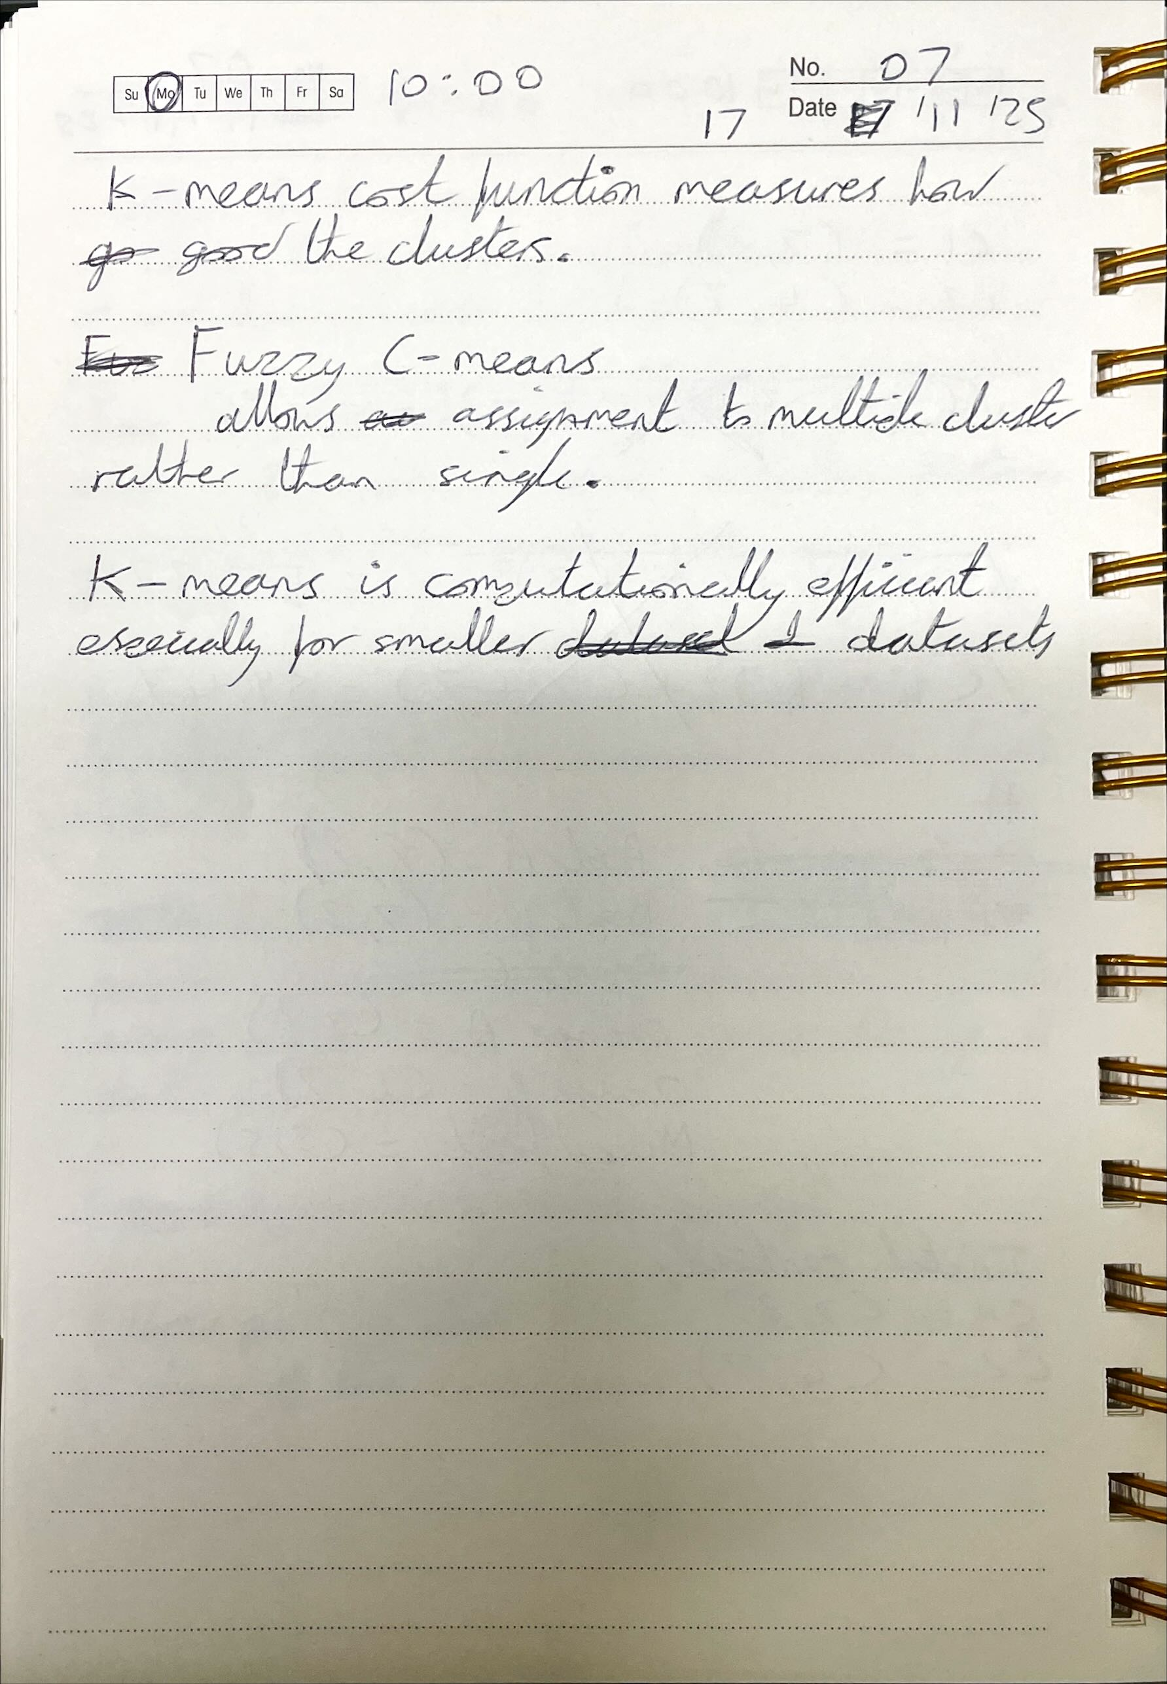 Su Mo Tu We Th Fr Sa 10:00 No. 07
17 Date /11 /25
K-means cost function measures how
go good the clusters.
Fuzzy C-means
allows assignment to multiple cluster
rather than single.
K-means is computationally efficient
especially for smaller datasets